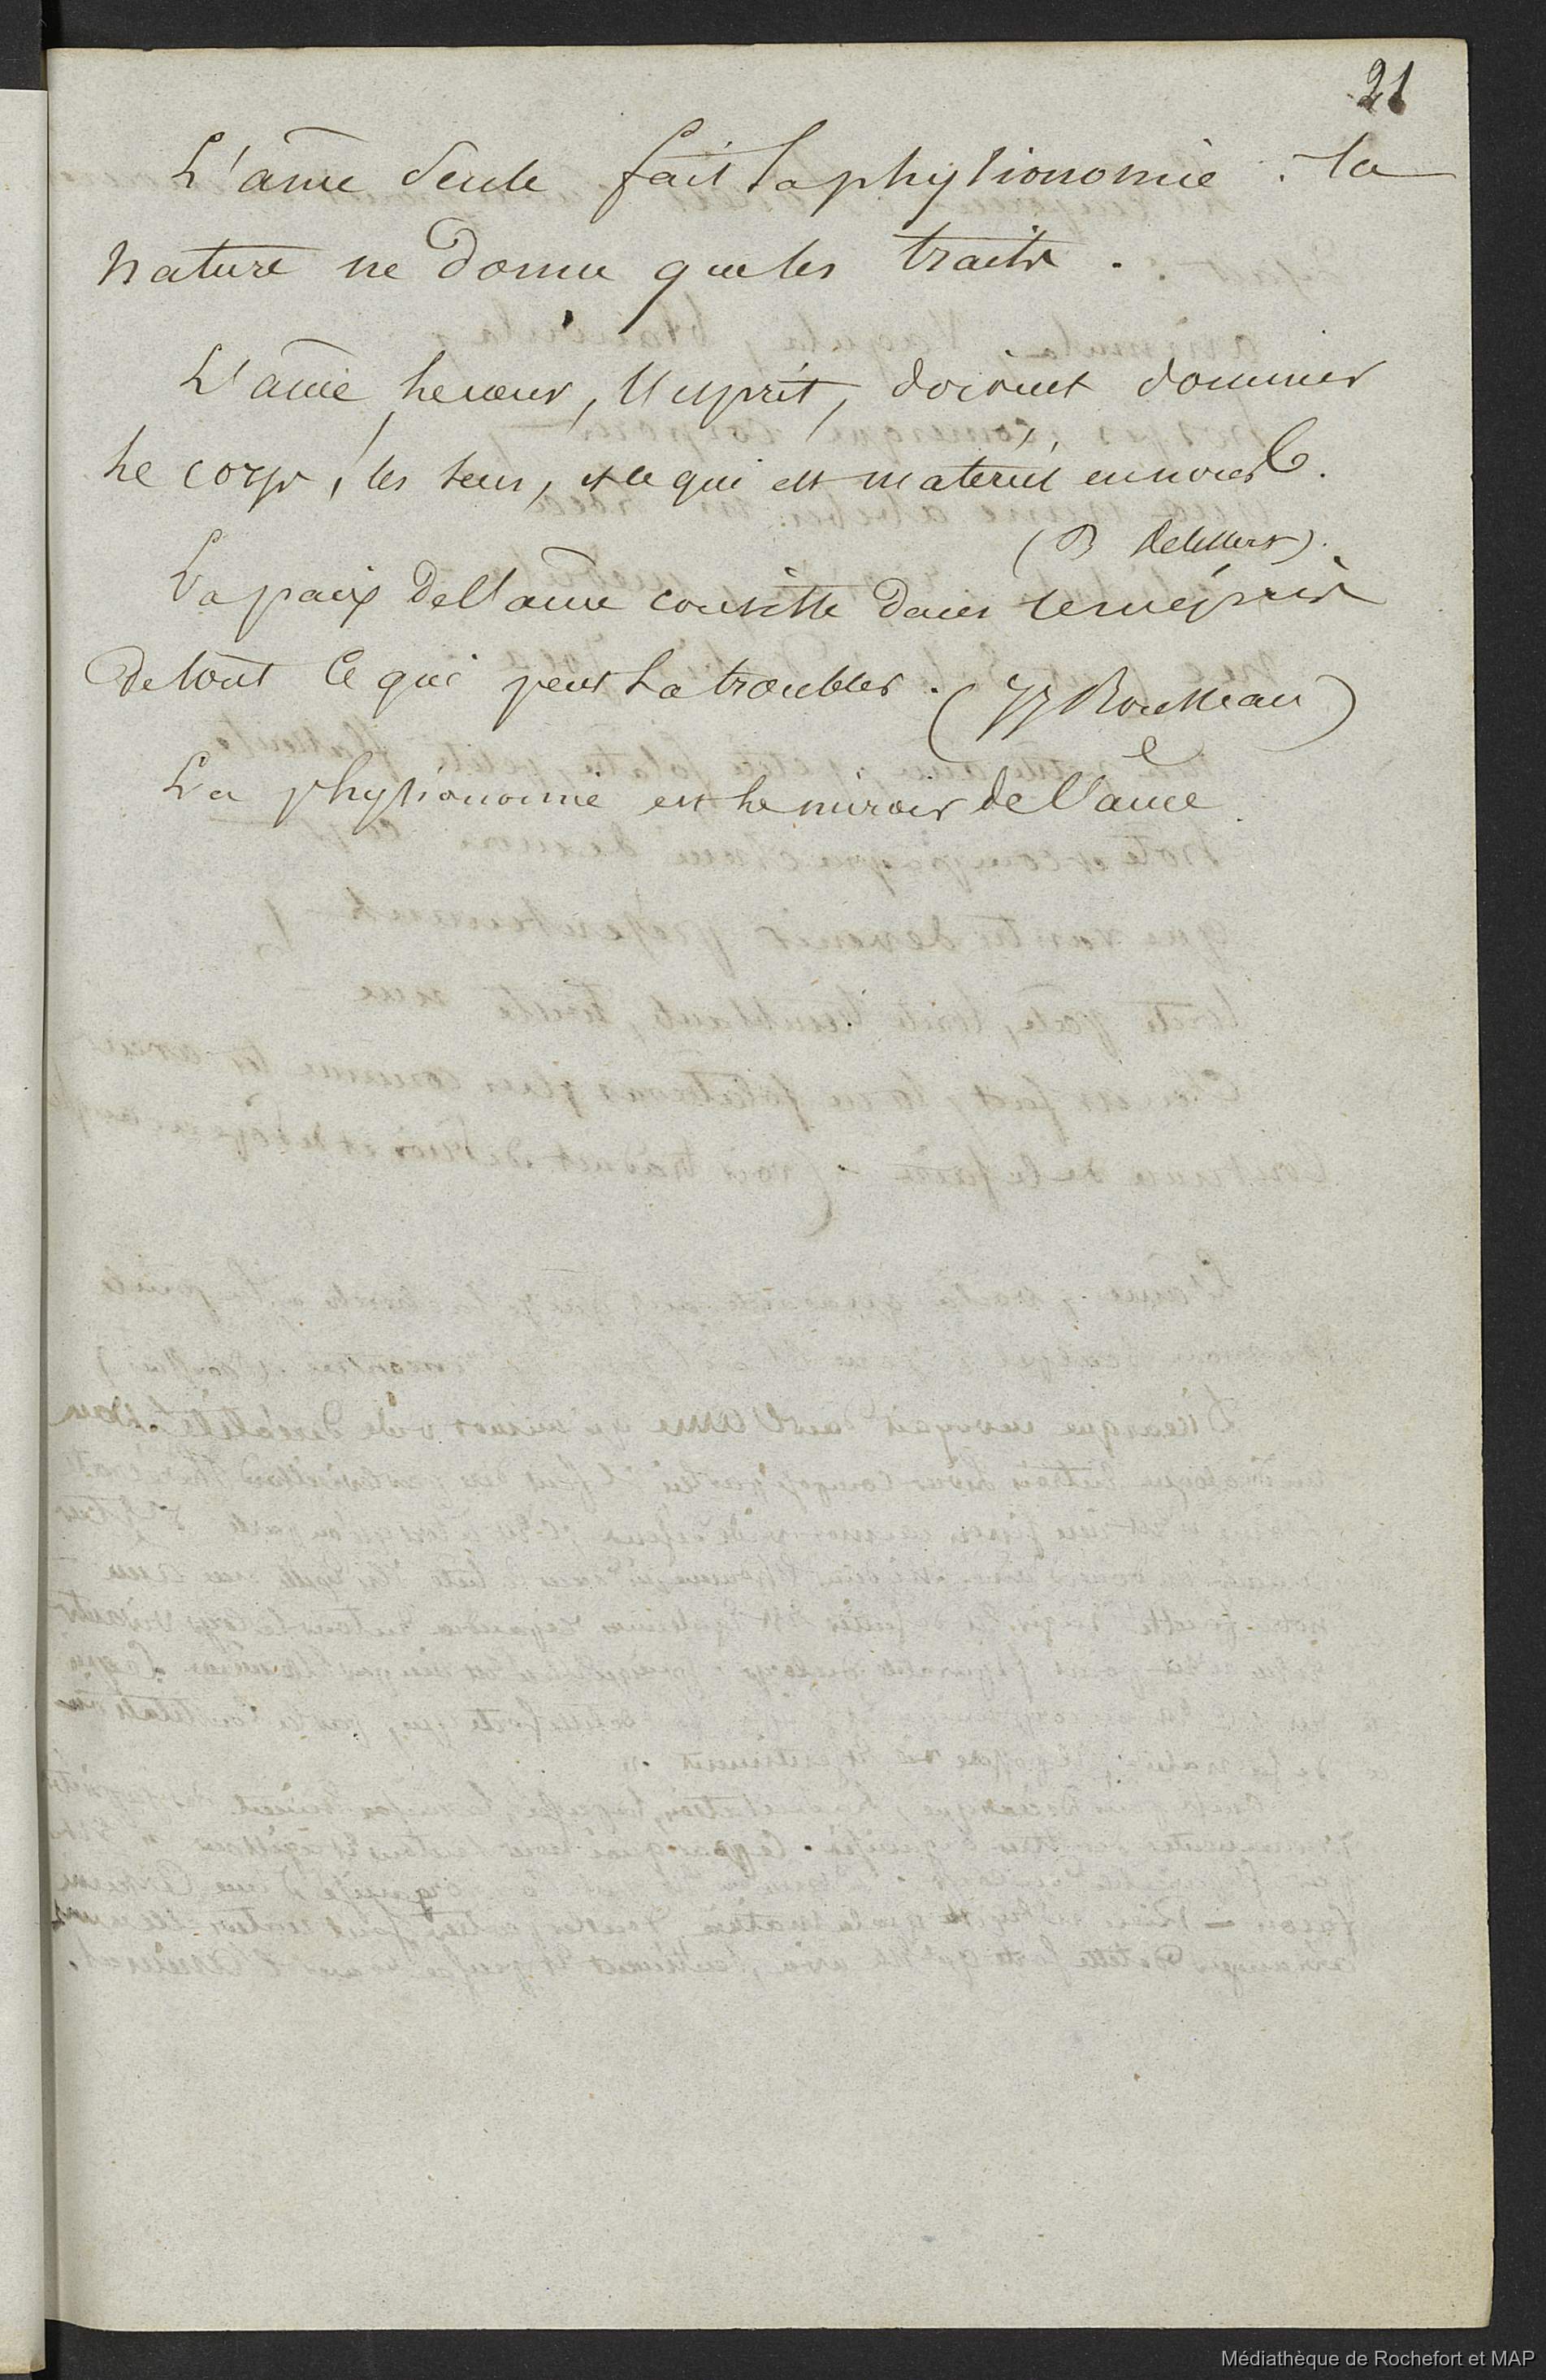 21
L'âme seule fait la physionomie : la
nature ne donne que les traits.
L'âme, le cœur, l'esprit, doivent dominer
le corps, les sens, et ce qui est matériel en nous.
(B
La paix de l'âme consiste dans le mépris
de tout ce qui peut la troubler. (JJ Rousseau)
La physionomie est le miroir de l'âme.
Médiathèque de Rochefort et MAP